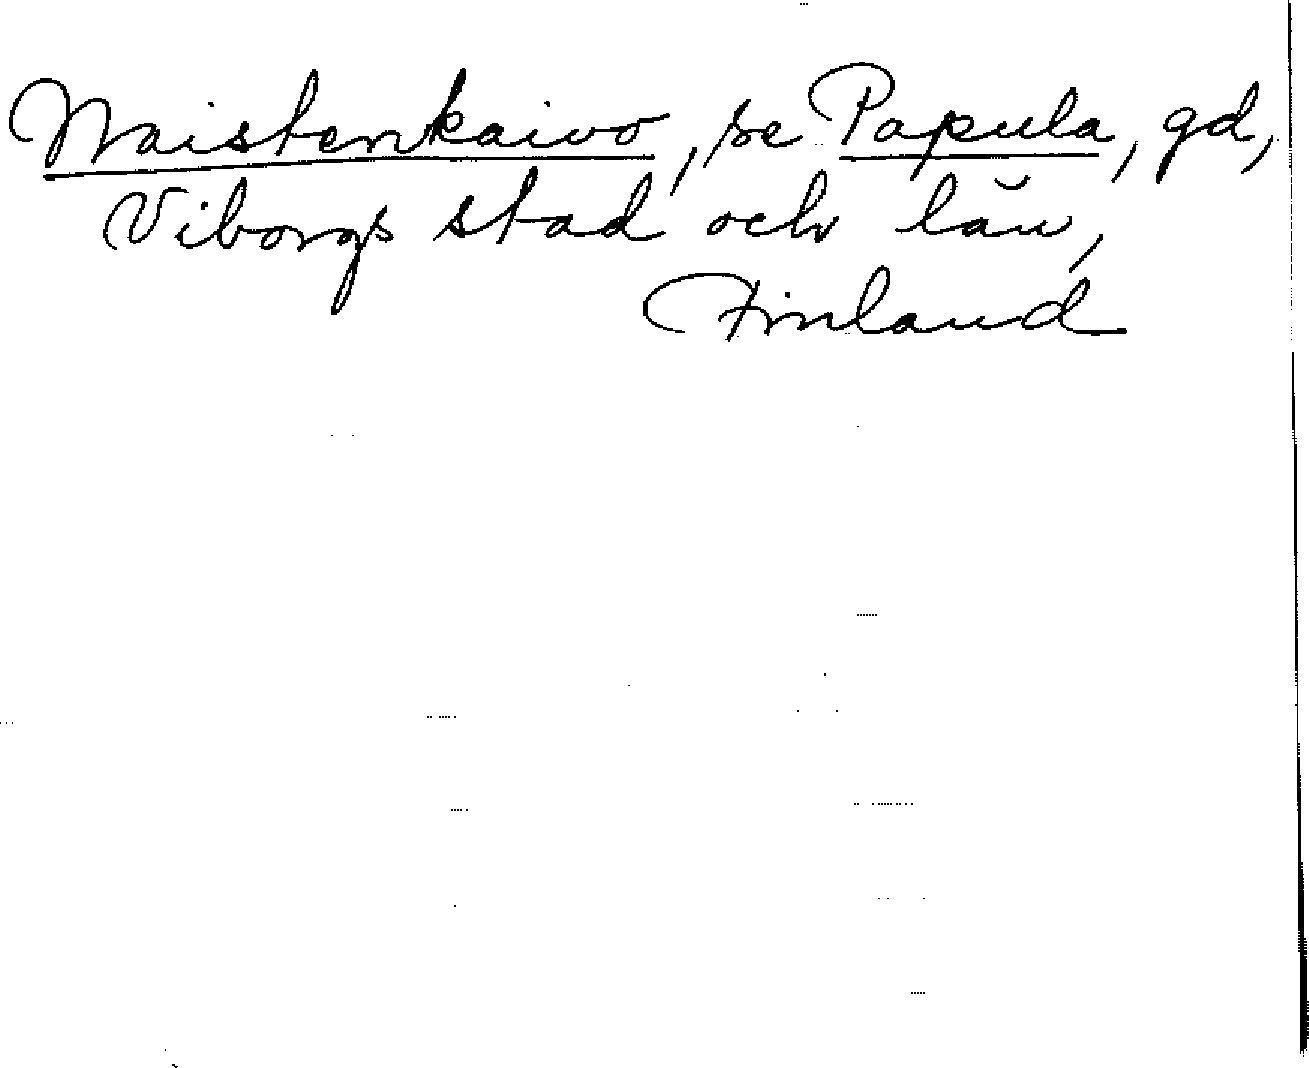 Naistenkaivo, se Papula, gd,
Viborgs stad och län,
Finland